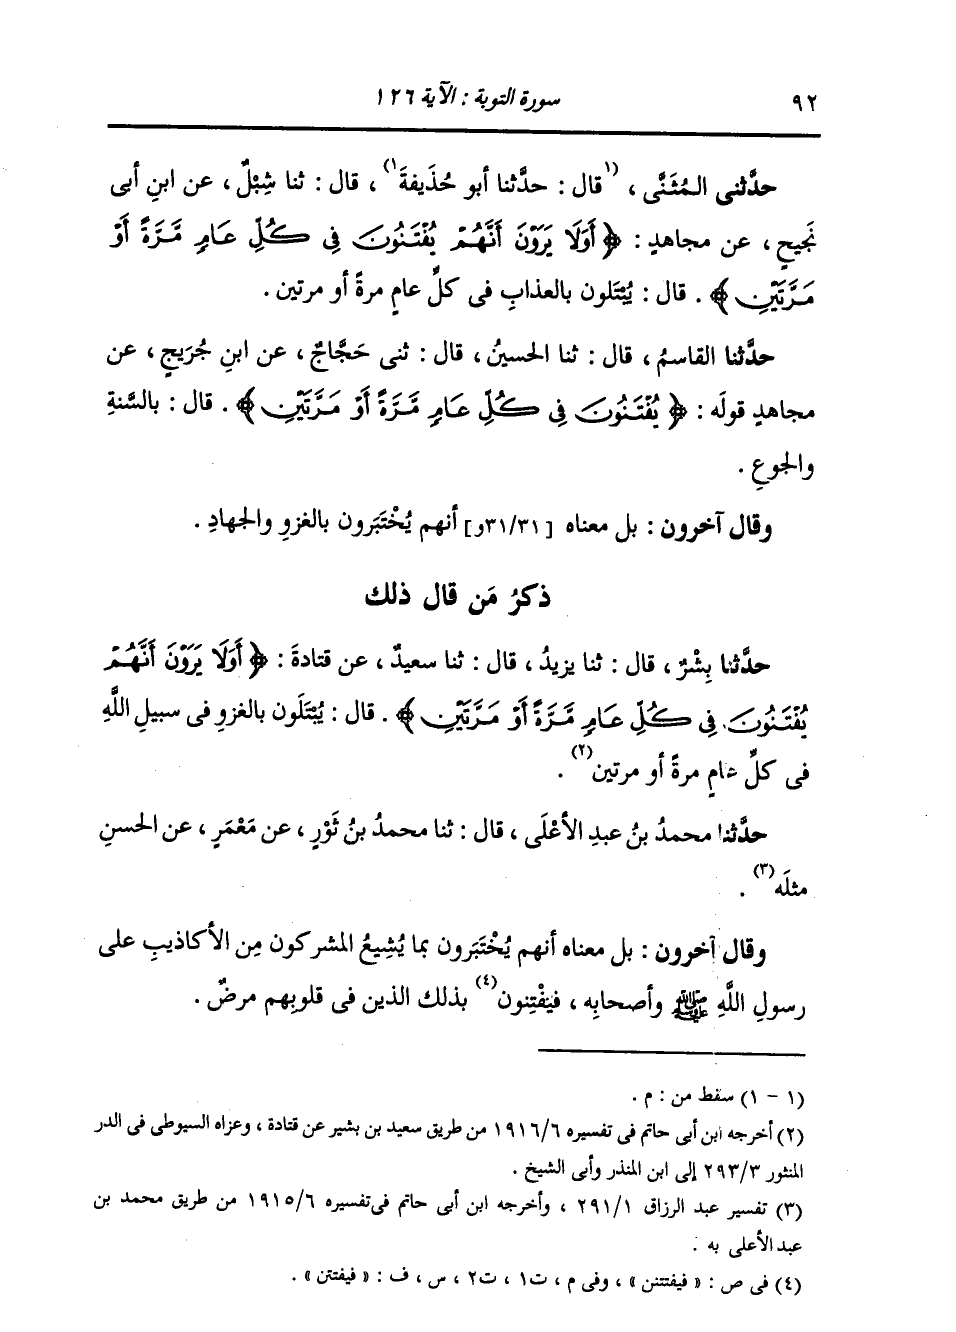 ٩٢
سورة التوبة : الآية ١٢٦
حدَّثنى المُثَنَّى ، (١قال : حدَّثنا أبو حُذَيفةَ١) ، قال : ثنا شِبْلٌ ، عن ابنِ أبى
نَجيحٍ ، عن مجاهدٍ : ﴿ أَوَلَا يَرَوْنَ أَنَّهُمْ يُفْتَنُونَ فِي كُلِّ عَامٍ مَّرَّةً أَوْ
مَرَّتَيْنِ ﴾ . قال : يُبْتَلون بالعذابِ فى كلِّ عامٍ مرةً أو مرتين .
حدَّثنا القاسمُ ، قال : ثنا الحسينُ ، قال : ثنى حَجَّاجٌ ، عن ابنِ جُرَيجٍ ، عن
مجاهدٍ قولَه : ﴿ يُفْتَنُونَ فِي كُلِّ عَامٍ مَّرَّةً أَوْ مَرَّتَيْنِ ﴾ . قال : بالسَّنةِ
والجوعِ .
وقال آخرون : بل معناه [ ٣١/٣١و] أنهم يُخْتَبَرون بالغزوِ والجهادِ .
ذكرُ مَن قال ذلك
حدَّثنا بِشْرٌ ، قال : ثنا يزيدُ ، قال : ثنا سعيدٌ ، عن قتادةَ : ﴿ أَوَلَا يَرَوْنَ أَنَّهُمْ
يُفْتَنُونَ فِي كُلِّ عَامٍ مَّرَّةً أَوْ مَرَّتَيْنِ ﴾ . قال : يُبْتَلَون بالغزوِ فى سبيلِ اللَّهِ
فى كلِّ عامٍ مرةً أو مرتين(٢) .
حدَّثنا محمدُ بنُ عبدِ الأعْلَى ، قال : ثنا محمدُ بنُ ثَوْرٍ ، عن مَعْمَرٍ ، عن الحسنِ
مثلَه(٣) .
وقال آخرون : بل معناه أنهم يُخْتَبَرون بما يُشِيعُ المشركون مِن الأكاذيبِ على
رسولِ اللَّهِ ﷺ وأصحابِه ، فيَفْتِنون(٤) بذلك الذين فى قلوبِهم مرضٌ .
(١ - ١) سقط من : م .
(٢) أخرجه ابن أبى حاتم فى تفسيره ١٩١٦/٦ من طريق سعيد بن بشير عن قتادة ، وعزاه السيوطى فى الدر
المنثور ٢٩٣/٣ إلى ابن المنذر وأبى الشيخ .
(٣) تفسير عبد الرزاق ٢٩١/١ ، وأخرجه ابن أبى حاتم فى تفسيره ١٩١٥/٦ من طريق محمد بن
عبد الأعلى به .
(٤) فى ص : « فيفتتنن » ، وفى م ، ت١ ، ت٢ ، س ، ف : « فيفتتن » .